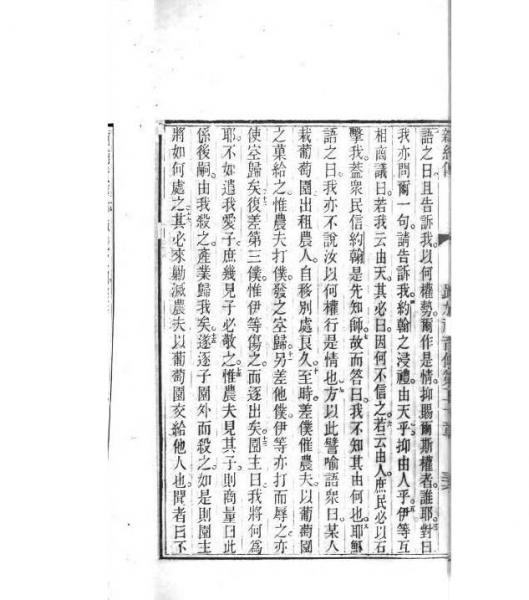 語之曰且告訴我以何權勢爾作是情抑賜爾斯權者誰耶對曰
我亦問爾一句請告訴我約翰之浸禮由天乎抑由人乎伊等互
相商議曰若我云由天其必曰因何不信之若云由人庶民必以石
擊我蓋衆民信約翰是先知師故而答曰我不知其由何也耶穌
語之曰我亦不說汝以何權行是情也方以此譬喻語衆曰某人
栽葡萄園出租農人自移別處良久至時差僕催農夫以葡萄園
之菓給之惟農夫打僕發之空歸另差他僕伊等亦打而辱之亦
使空歸矣復差第三僕惟伊等傷之而逐出矣園主曰我將何為
耶不如遣我愛子庶幾見子必敬之惟農夫見其子則商量曰此
係後嗣由我殺之產業歸我矣遂逐子園外而殺之如是則園主
將如何處之其必來勦滅農夫以葡萄園交給他人也聞者曰不